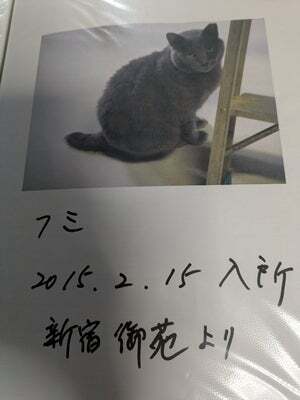 フミ
2015.2.15 入所
新宿御苑より